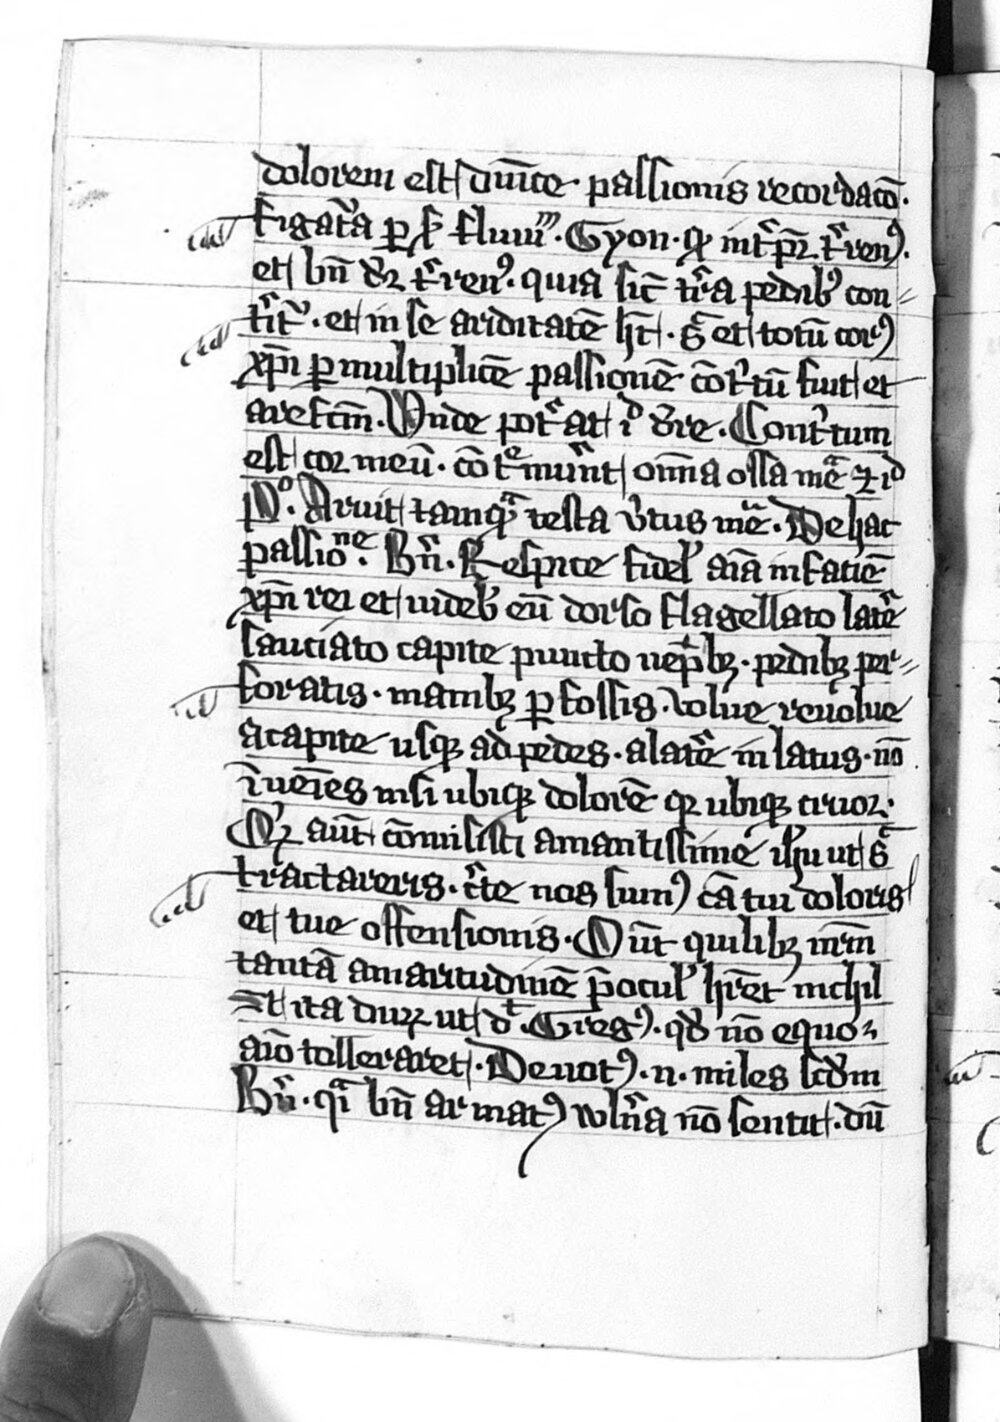 dolorem est dn̄ice · passionis recordacō ·
figat᷑a ꝑ ẜ fluuiᵐ · Gyon · qͥ int̾p̄r̄ t̾renꝰ ·
et bn̄ dr̄ t̾renꝰ · quia sic̄ t̾ra pedibꝰ con⸗
t̾it᷑ · et in se ariditatē hꝫ̄t · sͨ et totū corꝰ
xp̄i ꝑ multiplicē passionē cōt̾tū fuit et
arefc̄m · Vnde pot̾at iᵈ dr̄e · Cont̾tum
est cor meū · cōt̾muerūt om̄a ossa meᷓ ⁊ iᵈ
Pᵒ · Aruit tamqᷓ testa v̾tus meᷓ · De hac
passioⁿᵉ · Br̄n̄ · Respice fidel̾ aīa in faciē
xp̄i rei et uideb̾ eū dorso flagellato lat̾e
sauciato capite puncto uep̾bꝫ · pedibꝫ per⸗
foratis · manibꝫ ꝑfossis · volue reuolue
a capite usqꝫ ad pedes · a lat̾e in latus · nō
īueīes nisi ubiqꝫ dolorē qꝫ ubiqꝫ cruor ·
Qͥd aūt cōmisisti amantissime ih̄u ut sͨ
tractareris · c̾te nos sumꝰ cā tui doloris
et tue offensionis · Oūt quilibꝫ mr̄m
tantā amaritudinē p̄ocul̾ hr̄et nichil
ēt ita durꝫ ut dᵗ · Gregꝰ · qd̾ nō equo
aīo tolleraret · Deuotꝰ · n · miles scd̾m
Br̄n̄ · qͥ bn̄ armatꝰ vlnᷓa nō sentit · dū